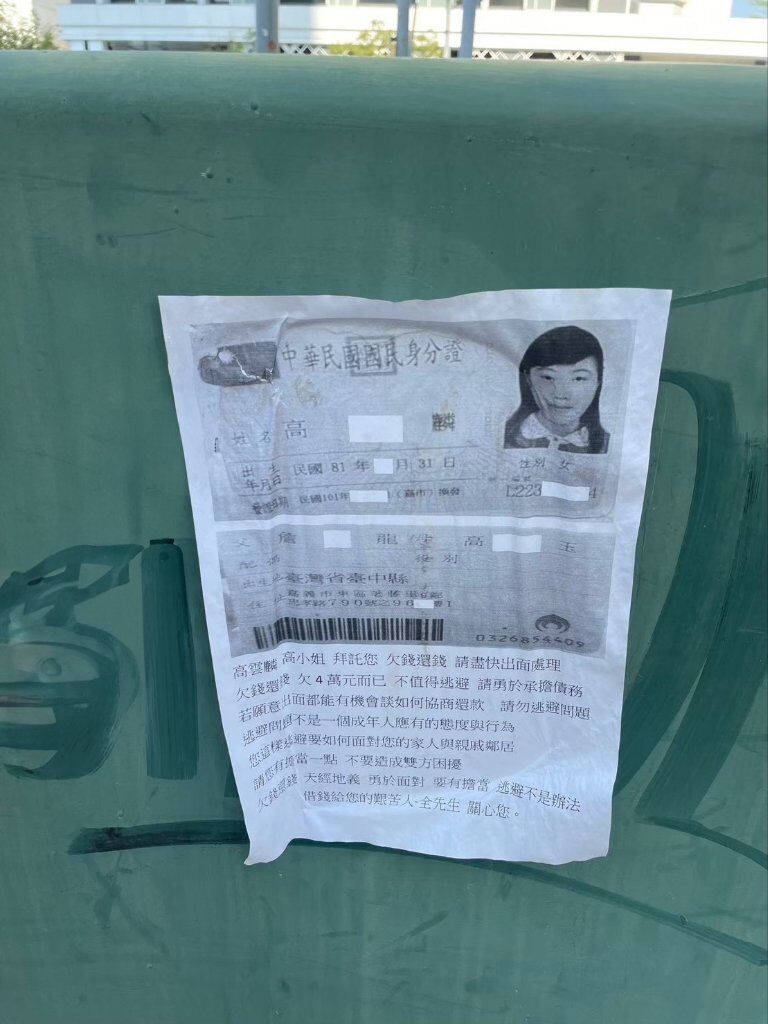 中華民國國民身分證
姓名 高 麟
出生年月日 民國 81 年 月 31 日 性別 女
發證日期 民國101年 (嘉市)換發 L223 4
父 詹 龍 母 高 玉
配偶 役別
出生地 臺灣省臺中縣
住址 嘉義市東區
忠孝路790號之96 1
0326854409
高雲麟 高小姐 拜託您 欠錢還錢 請盡快出面處理
欠錢還錢 欠 4 萬元而已 不值得逃避 請勇於承擔債務
若願意出面都能有機會談如何協商還款 請勿逃避問題
逃避問題不是一個成年人應有的態度與行為
您這樣逃避要如何面對您的家人與親戚鄰居
請您有擔當一點 不要造成雙方困擾
欠錢還錢 天經地義 勇於面對 要有擔當 逃避不是辦法
借錢給您的艱苦人-全先生 關心您。